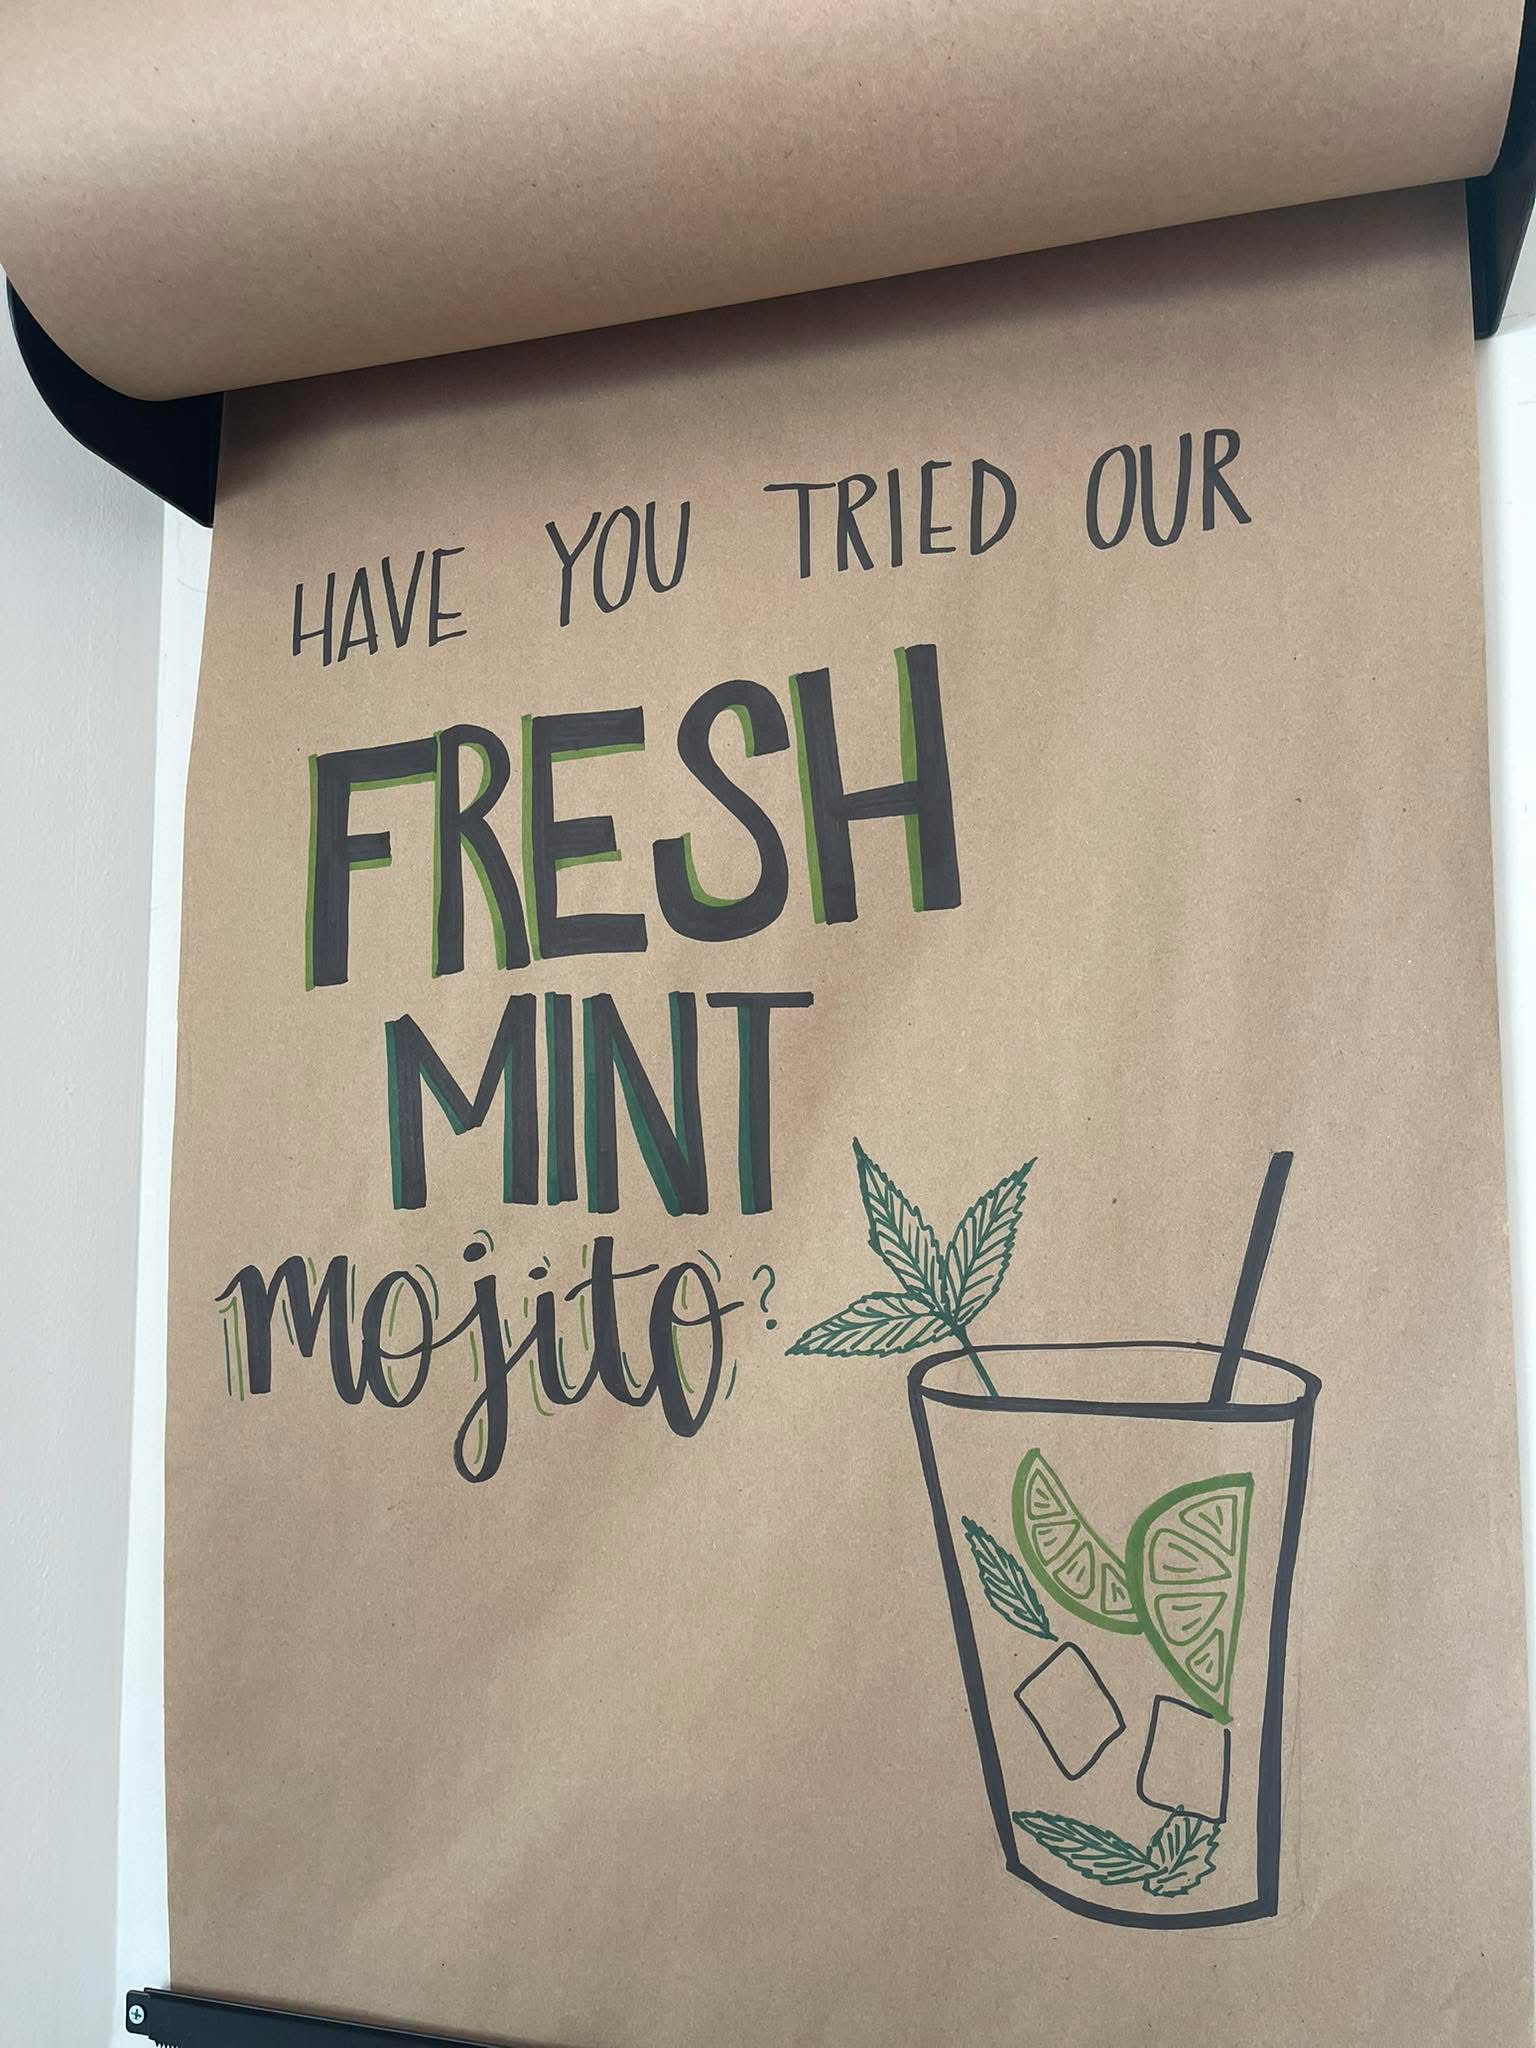 HAVE YOU TRIED OUR
FRESH
MINT
mojito?